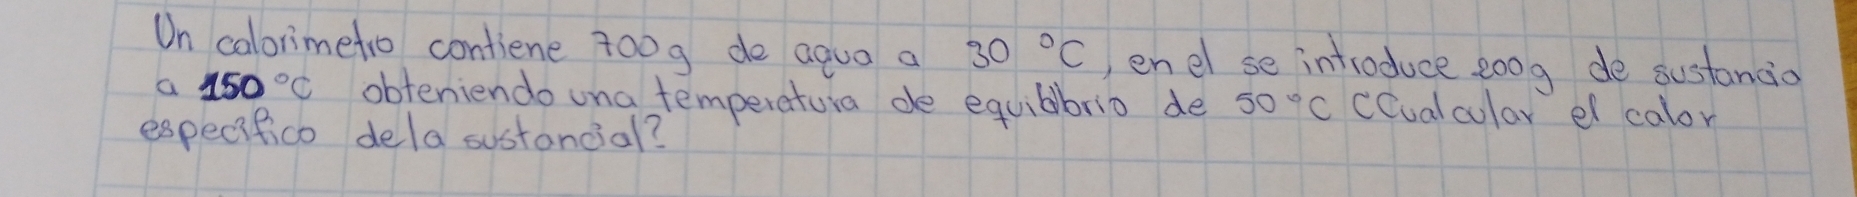 Un calorimetro contiene 700g de agua a 30 °C, en el se introduce 200g de sustancia
a 150°C obteniendo una temperatura de equilibrio de 50°C ¿Cualcular el calor
especifico dela sustancial?